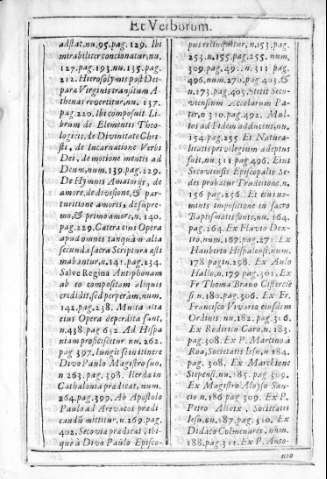 Et Verborum.
adstat, nu. 95. pag. 129. Ibi
mirabiliter concionatur, nu.
127. pag. 193. nu. 135. pag.
212. Hierosolymis post Dei-
paræ Virginis transitum A
thenas revertitur, nu. 137.
pag. 220. Ibi composuit Li-
brum de Elementis Theo-
logicis, de Divinitate Chri-
sti, de Incarnatione Verbi
Dei, de motione mentis ad
Deum, num. 139. pag. 129.
De Hymnis Amatorijs, de
amore, de divisione, & par-
turitione amoris, de supre-
mo, & primo amore, n. 140.
pag. 229. Cætera eius Opera
apud omnes tanquã in alta
secunda sacra Scriptura æsti
mabantur, n. 141. pag. 234.
Salve Regina Antiphonam
ab eo compositam aliquis
credidit, sed perperàm, num.
142. pag. 238. Multa alia
eius Opera deperdita sunt,
n. 438. pag. 632. Ad Hispa
niam proficiscitur nu. 262.
pag. 397. iungitse iuitinere
Divo Paulo Magistro suo,
n. 263. pag. 398. Ilerda in
Cathalonia prædicat, num.
264. pag. 399. Ab Apostolo
Paulo ad Arevacos prædi
candũ mittitur, n. 269. pag.
402. Secoviæ prædicat, ibi-
què à Divo Paulo Episco-
pus relinquitur, n. 153. pag.
253. n. 155. pag. 255. num.
309. pag. 49. n. 311. pag.
496. num. 270. pag. 403. &
n. 173. pag. 405. Stetit Seco-
viensium Accolarum Pa-
ter, n. 310. pag. 492. Mul-
tos ad Fidem adducit, nu.
154. pag. 255. Et Natura-
litatis privilegium adeptus
fuit, nu. 311. pag. 496. Eius
Secoviensis Episcopalis Se-
des probatur Traditione, n.
156. pag. 256. Et eius no-
minis impositione in sacro
Baptismatis fonte, nu. 164.
pag. 264. Ex Flavio Dex-
tro, num. 167. pag. 271. Ex
Hauberto Hispalensi, num.
178. pag. 298. Ex Aulo
Hallo, n. 179. pag. 301. Ex
Fr. Thoma Bravo Cisterciẽ
si n. 180. pag. 306. Ex Fr.
Francisco Vivario eiusdem
Ordinis nu. 182. pag. 306.
Ex Roderico Caro, n. 183.
pag. 308. Ex P. Martino à
Roa, Societatis Iesu, n. 184.
pag. 308. Ex Marchione
Stipensi, nu. 185. pag. 309.
Ex Magistro Aluyso San-
cio n. 186. pag. 309. Ex P.
Petro Alloix, Societatis
Iesu, n. 187. pag. 310. Ex
Didaco Colmenares, num.
188. pag. 311. Ex P. Anto-
nio